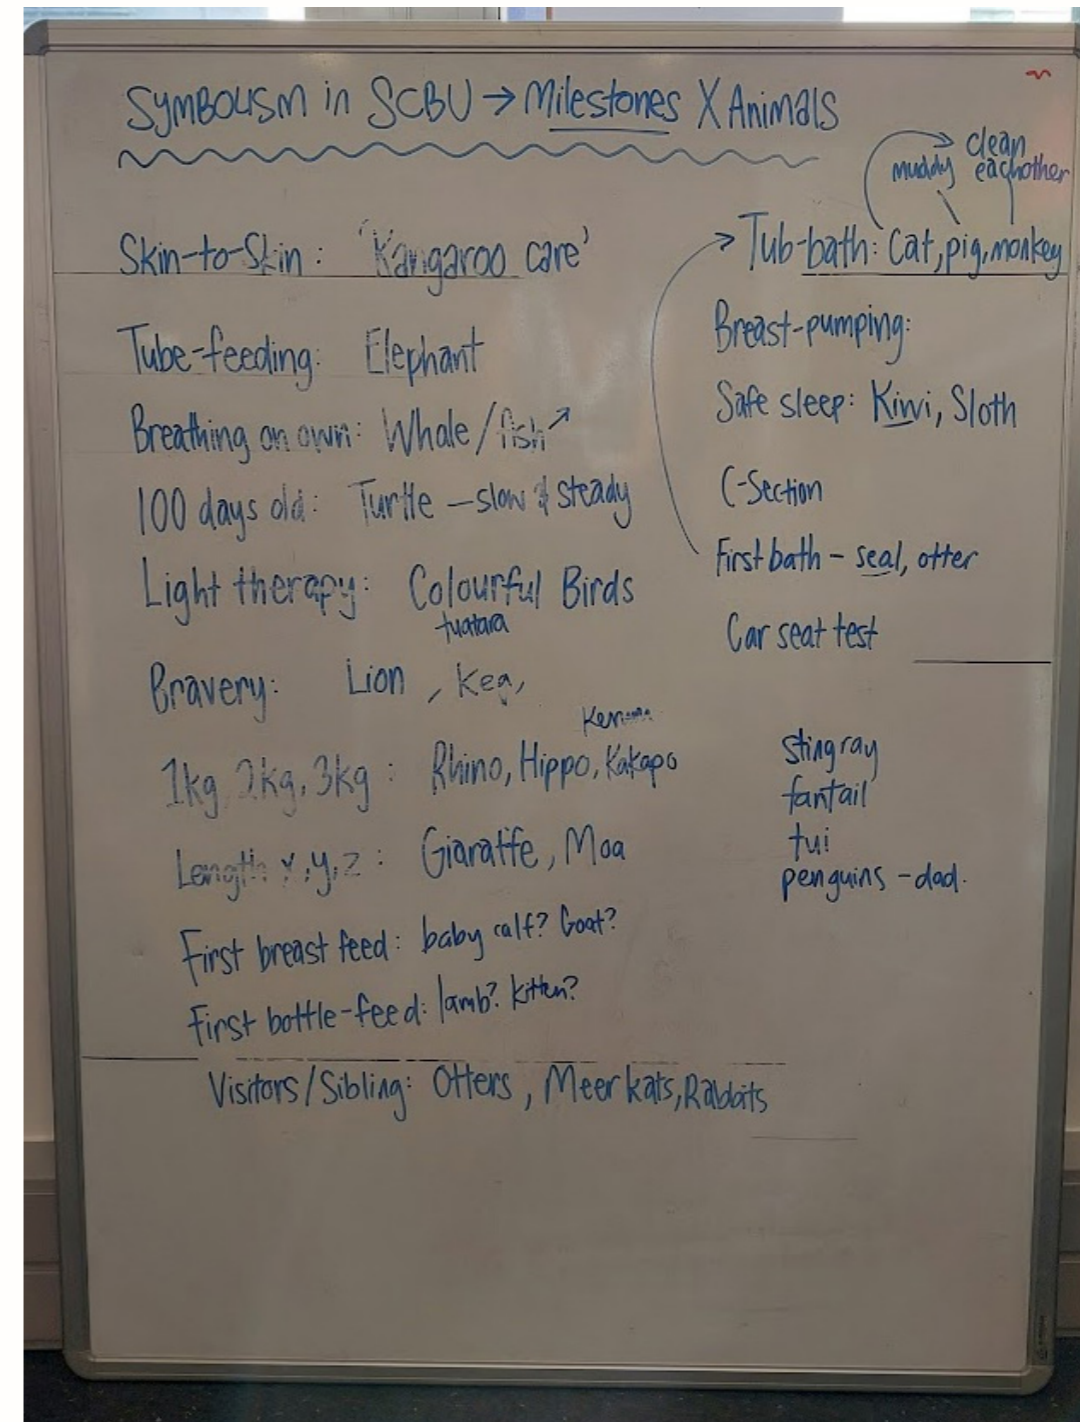 SYMBOLISM in SCBU → Milestones X Animals
Skin-to-Skin: 'Kangaroo care'
Tube-feeding: Elephant
Breathing on own: Whale/fish
100 days old: Turtle – slow & steady
Light therapy: Colourful Birds
tuatara
Bravery: Lion, Kea,
1kg, 2kg, 3kg: Rhino, Hippo, Kakapo
Length x,y,z: Giaraffe, Moa
First breast feed: baby calf? Goat?
First bottle-feed: lamb? kitten?
Visitors/Sibling: Otters, Meerkats, Rabbits
clean
muddy eachother
Tub-bath: Cat, pig, monkey
Breast-pumping:
Safe sleep: Kiwi, Sloth
C-Section
First bath – seal, otter
Car seat test
stingray
fantail
tui
penguins – dad.